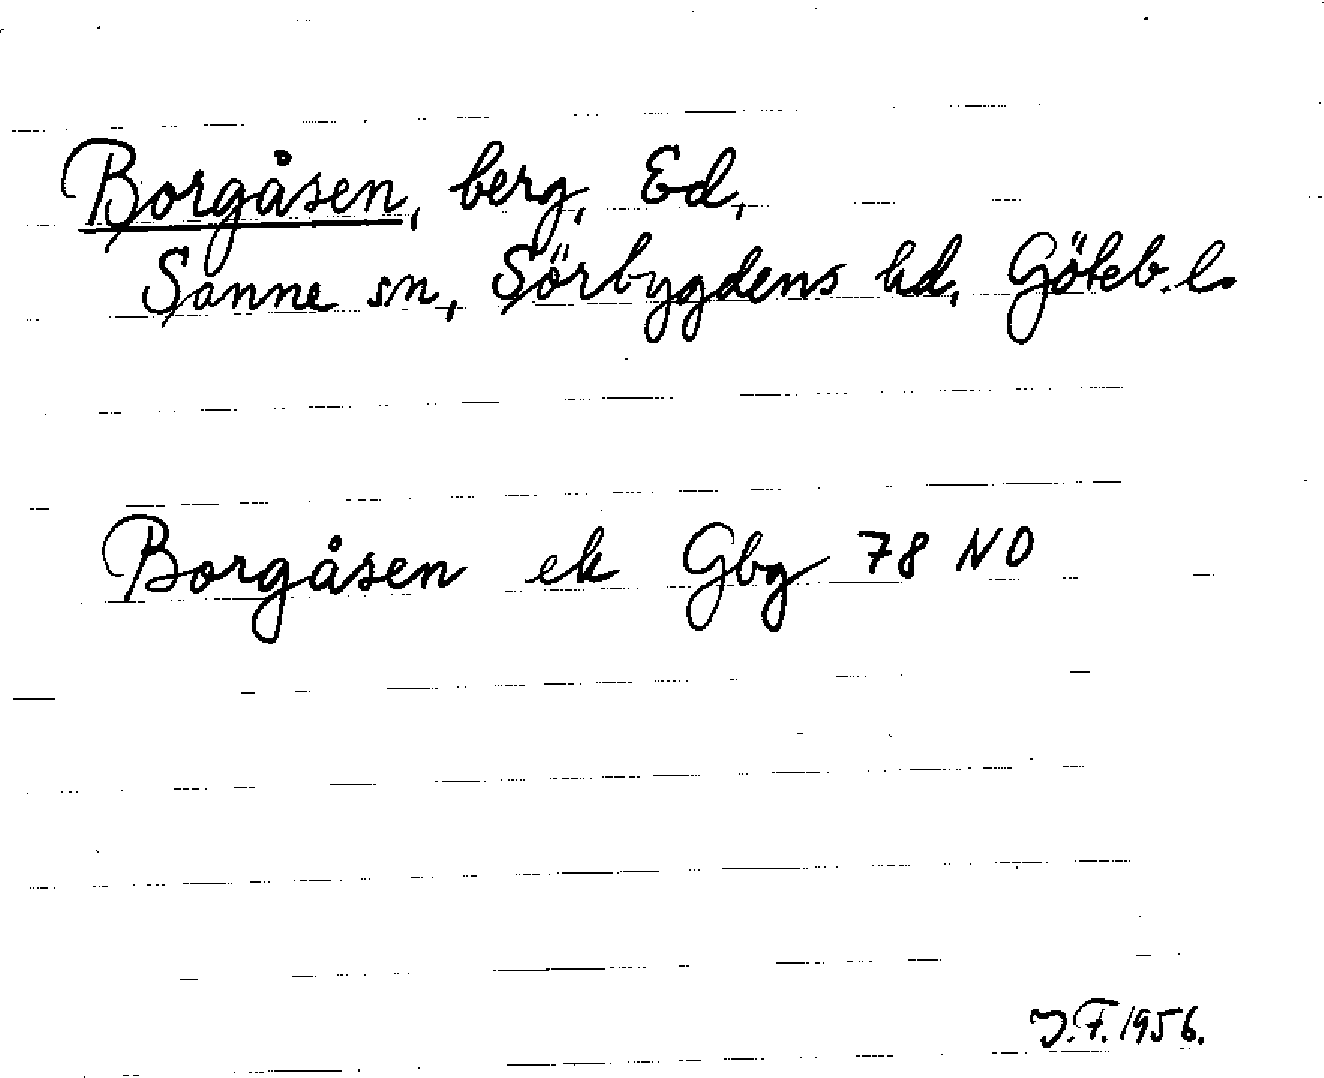 Borgåsen, berg, Ed,
Sanne sn, Sörbygdens hd, Göteb. l.
Borgåsen ek Gbg 78 NO
J.F. 1956.